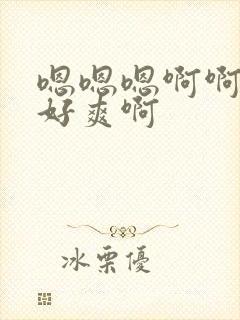 嗯嗯嗯啊啊
好爽啊
冰栗優